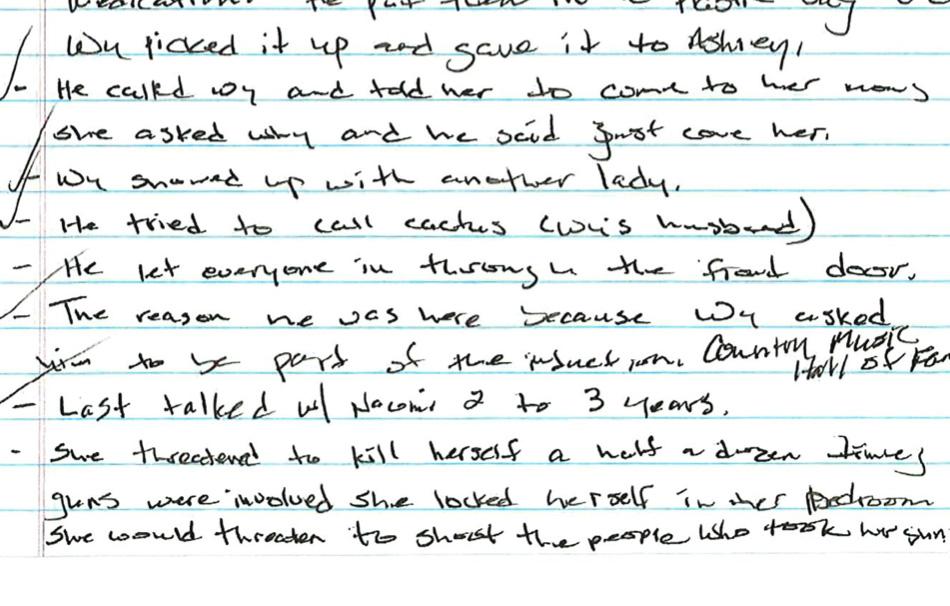 Wy picked it up and gave it to Ashley,
- He called Wy and told her to come to her moms
she asked why and he said just come here.
- Wy showed up with another lady.
- He tried to call cactus (Wy's husband)
- He let everyone in through the front door.
- The reason he was here because Wy asked
him to be part of the induction. Country Music
Hall of Fam
- Last talked w/ Naomi 2 to 3 years.
- She threatened to kill herself a half a dozen times
guns were involved she locked herself in her bedroom
She would threaten to shoot the people who took her gun